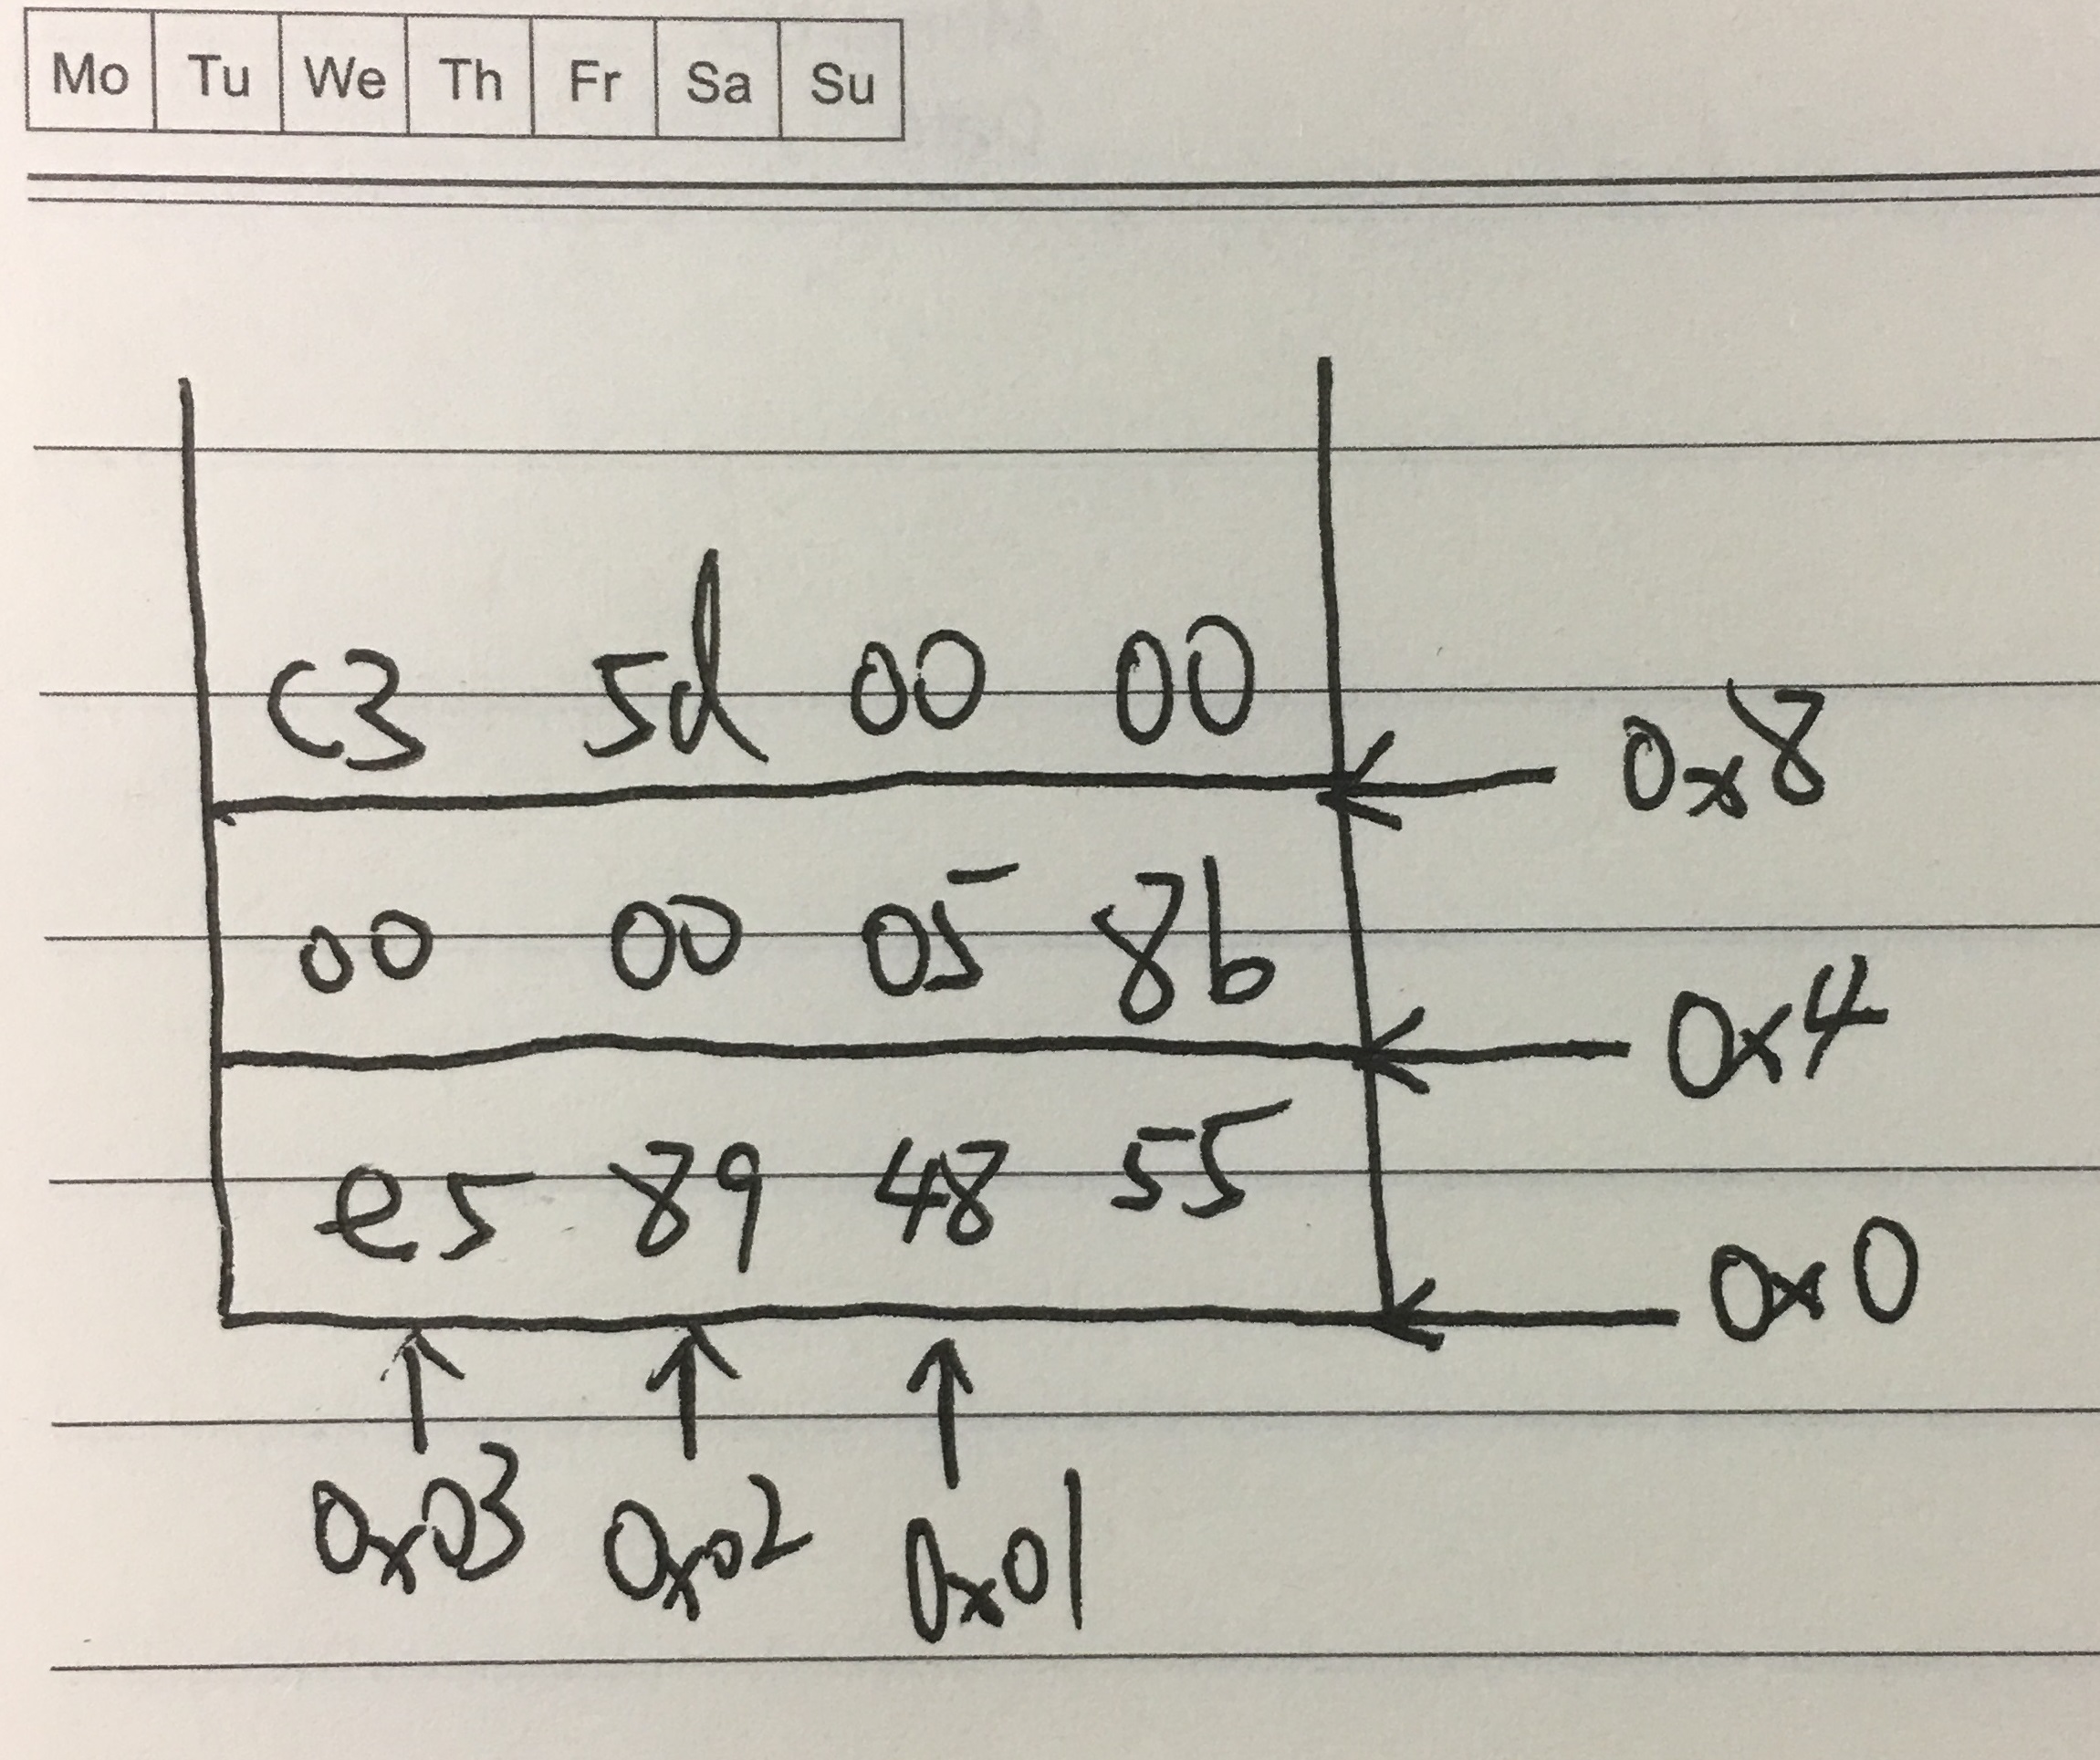 Mo Tu We Th Fr Sa Su
c3 5d 00 00
0x8
00 00 05 8b
0x4
e5 89 48 55
0x0
0x03 0x02 0x01